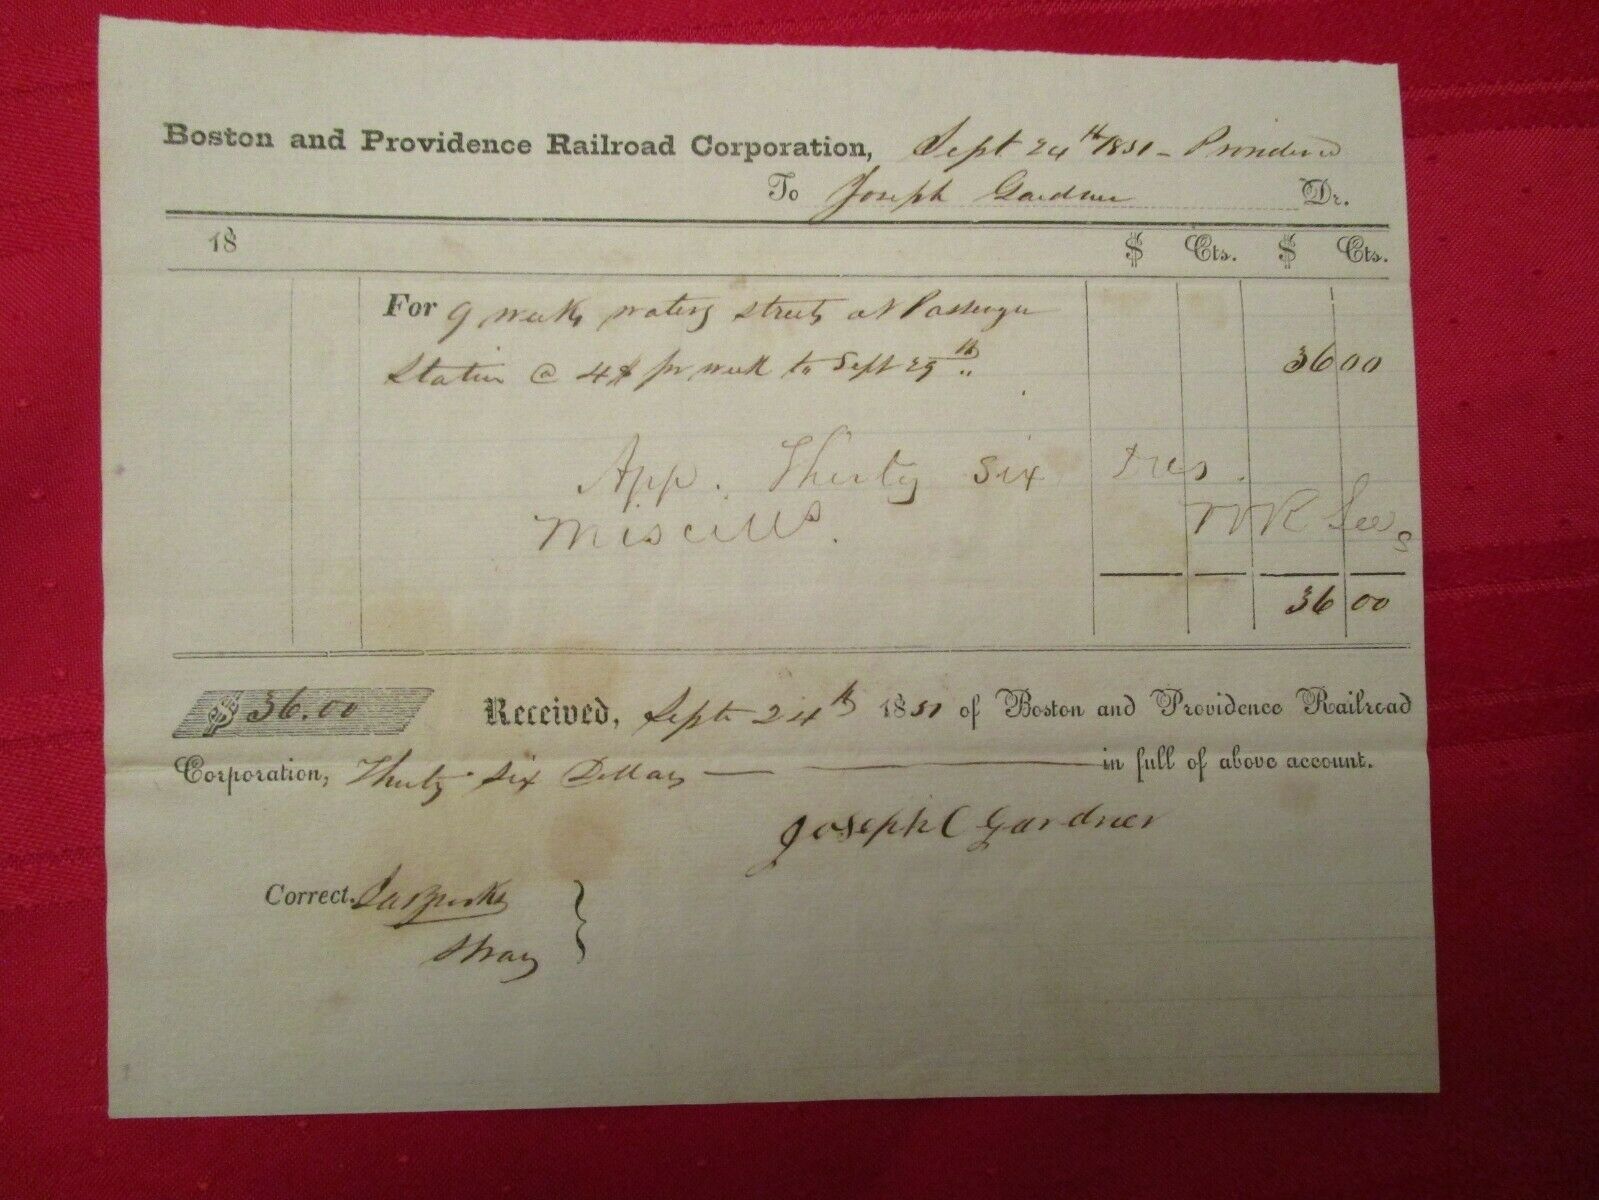 Boston and Providence Railroad Corporation, Sept 24th 1851 - Providence
To Joseph Gardner Dr.
18 $ Cts. $ Cts.
For 9 weeks waterg streets at Passenger
Station @ 4$ pr week to Sept 29th 36 00
App. Thirty Six
Miscills. W R Lee
36 00
$ 36.00 Received, Sept 24th 1851 of Boston and Providence Railroad
Corporation, Thirty Six Dollars — — in full of above account.
Joseph C Gardner
Correct.